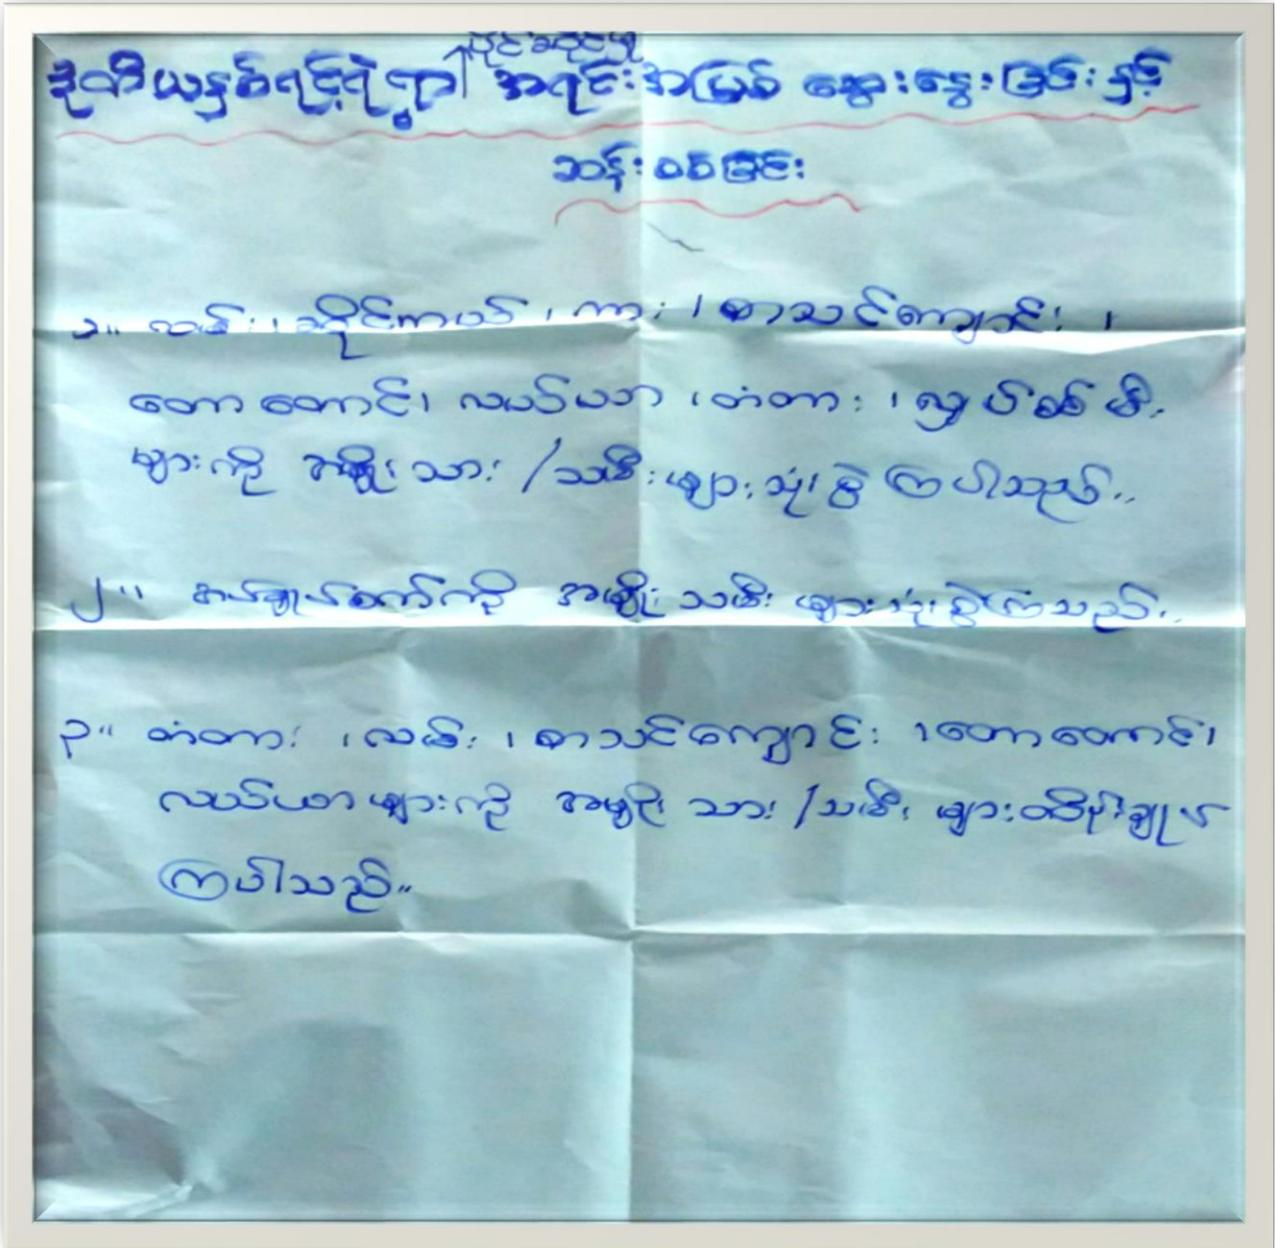 ပိုင်ဆိုင်မှု
ဒုတိယနှစ်ရင့်ရဲ့ရွာ၊ အရင်းအမြစ် ဆွေးနွေးခြင်းနှင့်
ဆန်းစစ်ခြင်း
၁။ လမ်း၊ ဆိုင်ကယ်၊ ကား၊ စာသင်ကျောင်း၊
တောတောင်၊ လယ်ယာ၊ တံတား၊ လျှပ်စစ်မီး
များကို အမျိုးသား/သမီးများသုံးစွဲကြပါသည်။
၂။ အမျိုးသမီးများသုံးစွဲကြသည်။
၃။ တံတား၊ လမ်း၊ စာသင်ကျောင်း၊ တောတောင်၊
လယ်ယာများကို အမျိုးသား/သမီးများထိန်းချုပ်
ကြပါသည်။